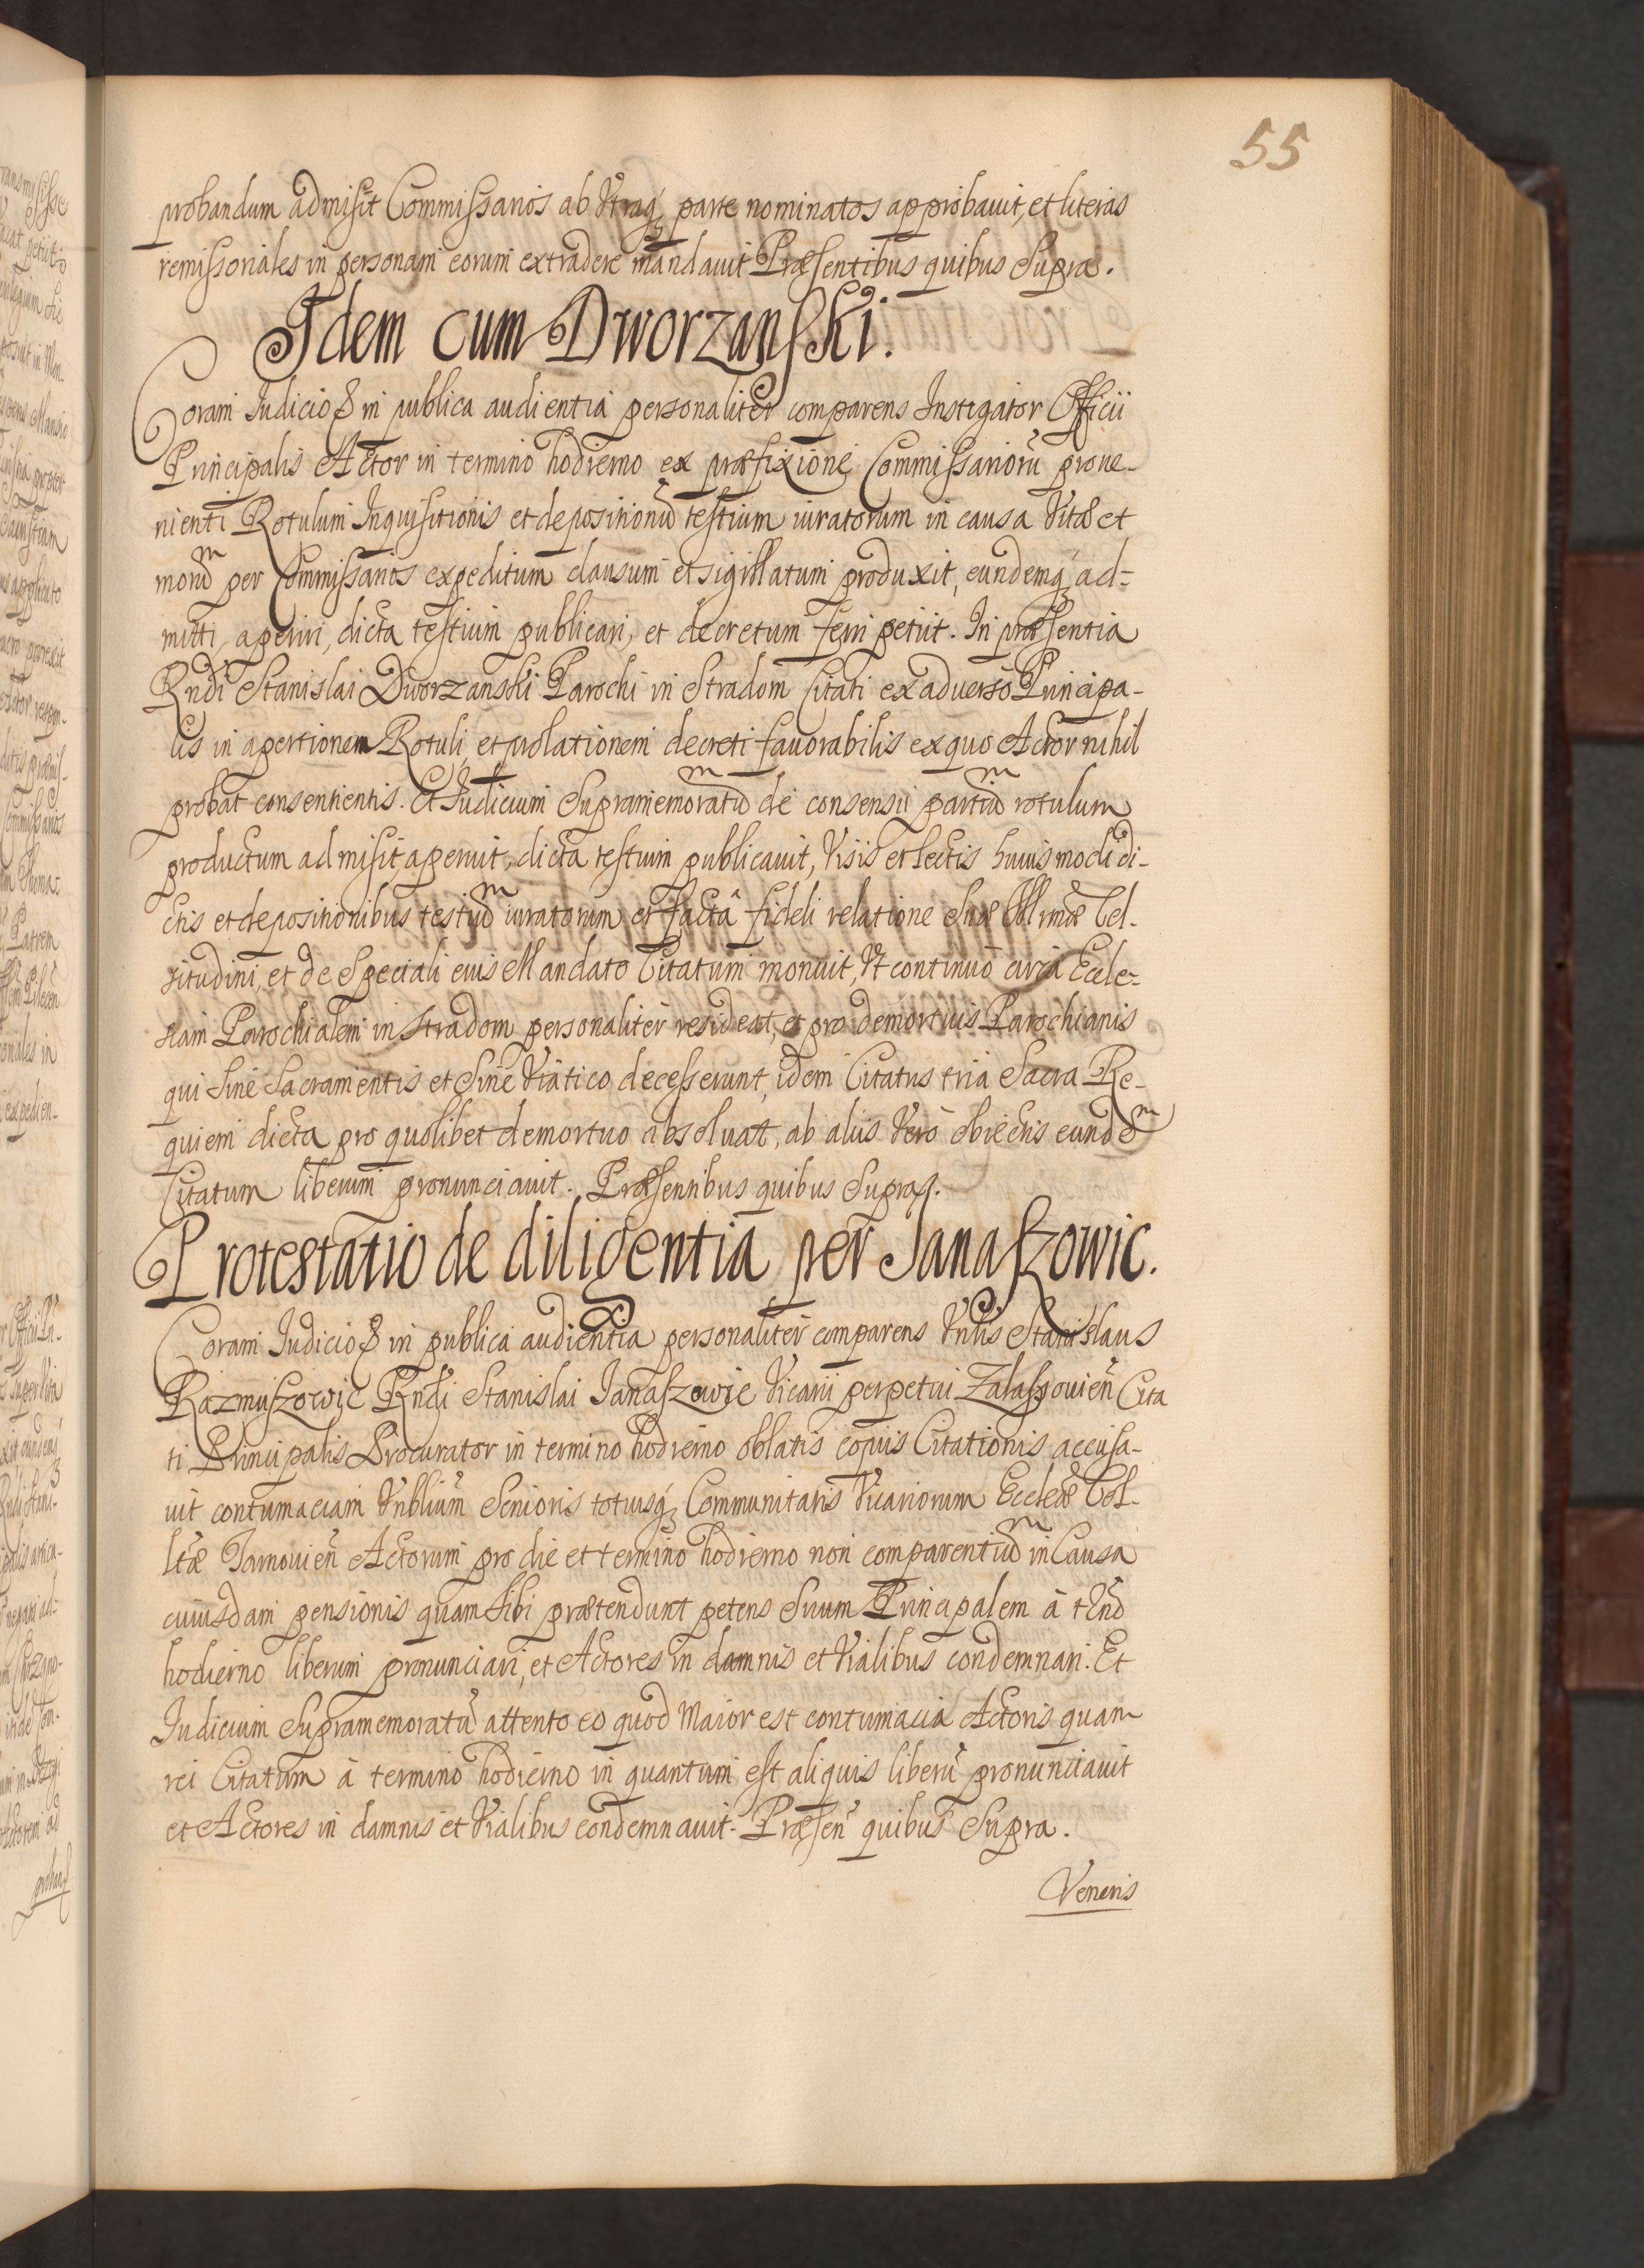 55
probandum admisit Commissarios ab Utraq; parte nominatos approbauit, et literas
remissoriales in personam eorum extradere mandauit Præsentibus quibus Supra.
Idem cum Dworzanski.
Coram Iudicio & in publica audientia personaliter comparens Instigator Officii
Principalis Actor in termino hodierno ex præfixione Commissariorũ proue-
nienti Rotulum Inquisitionis et depositionũ testium iuratorum in causa Vitæ et
morũ per Commissarios expeditum clausum et sigillatum produxit, eundemq; ad-
mitti, aperiri, dicta testium publicari, et decretum ferri petiit. In præsentia
Rndi Stanislai Dworzanski Parochi in Stradom Citati ex aduerso Principa-
lis in apertionem Rotuli, et prolationem decreti fauorabilis ex quo Actor nihil
probat consentientis. Et Iudicium Supramemoratũ de consensu partiũ rotulum
productum admisit, aperuit, dicta testium publicauit, Visis et lectis huiusmodi di-
ctis et depositionibus testiũ iuratorum et factâ fideli relatione Suæ Illrimæ Cel-
situdini, et de Speciali eius Mandato Citatum monuit, Vt continuò circa Eccle-
siam Parochialem in Stradom personaliter resideat, et pro demortuis Parochianis
qui Sine Sacramentis et Sine Viatico decesserunt, idem Citatus tria Sacra Re-
quiem dicta pro quolibet demortuo absoluat, ab aliis Verò obiectis eundẽ
Citatum liberum pronunciauit. Præsentibus quibus Supra.
Protestatio de diligentia per Janaszowic.
Coram Iudicio & in publica audientia personaliter comparens Vnlis Stanislaus
Razmuszowic Rndi Stanislai Janaszowic Vicarii perpetui Zalassouieñ Cita
ti Principalis Procurator in termino hodierno oblatis copiis Citationis accusa-
uit contumaciam Vnblium Senioris totiusq; Communitatis Vicariorum Eccleæ Col-
ltæ Tarnouieñ Actorum pro die et termino hodierno non comparentiũ in Causa
cuiusdam pensionis quam Sibi prætendunt petens Suum Principalem à tñno
hodierno liberum pronunciari, et Actores in damnis et Vialibus condemnari. Et
Iudicium Supramemoratũ attento eo quod Maior est contumacia Actoris quam
rei Citatum à termino hodierno in quantum Est aliquis liberũ pronunciauit
et Actores in damnis et Vialibus condemnauit. Præseñ quibus Supra.
Veneris